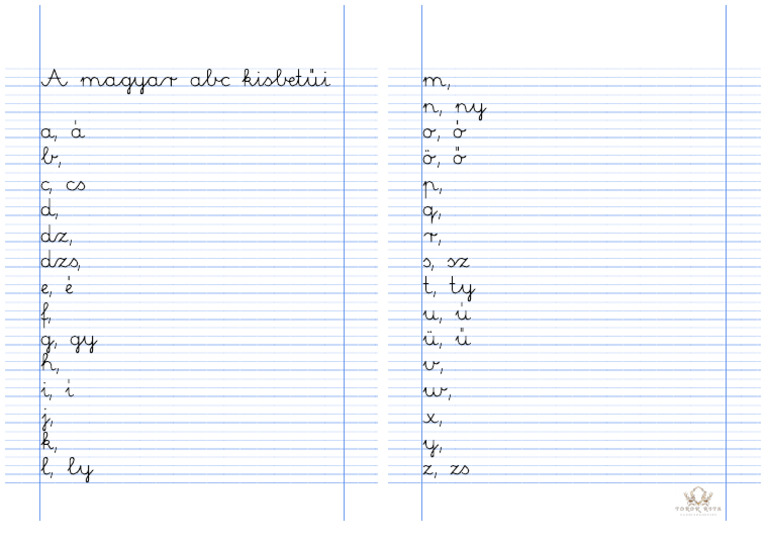 A magyar abc kisbetűi
a, á
b,
c, cs
d,
dz,
dzs,
e, é
f,
g, gy
h,
i, í
j,
k,
l, ly
m,
n, ny
o, ó
ö, ő
p,
q,
r,
s, sz
t, ty
u, ú
ü, ű
v,
w,
x,
y,
z, zs